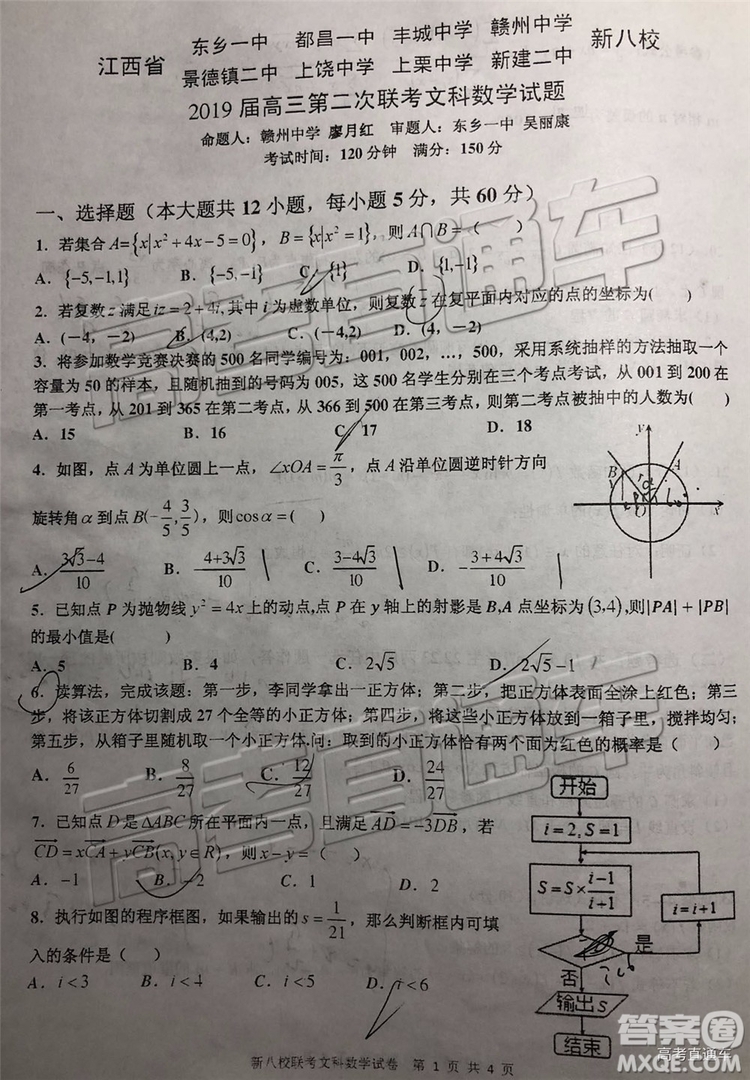 江西省 东乡一中 都昌一中 丰城中学 赣州中学 新八校
景德镇二中 上饶中学 上栗中学 新建二中
2019 届高三第二次联考文科数学试题
命题人：赣州中学 廖月红 审题人：东乡一中 吴丽康
考试时间：120 分钟 满分：150 分
一、选择题（本大题共 12 小题，每小题 5 分，共 60 分）
1. 若集合 A={x|x²+4x-5=0}，B={x|x²=1}，则 A∩B=（ ）
A. {-5,-1,1} B. {-5,-1} C. {1} D. {1,-1}
2. 若复数 z 满足 iz=2+4i,其中 i 为虚数单位，则复数 z 在复平面内对应的点的坐标为( )
A. (-4，-2) B. (4,2) C. (-4，2) D. (4，-2)
3. 将参加数学竞赛决赛的 500 名同学编号为：001，002，…，500，采用系统抽样的方法抽取一个
容量为 50 的样本，且随机抽到的号码为 005，这 500 名学生分别在三个考点考试，从 001 到 200 在
第一考点，从 201 到 365 在第二考点，从 366 到 500 在第三考点，则第二考点被抽中的人数为( )
A. 15 B. 16 C 17 D. 18
4. 如图，点 A 为单位圆上一点，∠xOA=π/3，点 A 沿单位圆逆时针方向
旋转角 α 到点 B(-4/5,3/5)，则 cosα=( )
A. (3√3-4)/10 B. -(4+3√3)/10 C. (3-4√3)/10 D. -(3+4√3)/10
y
B
A
x
5. 已知点 P 为抛物线 y²=4x 上的动点,点 P 在 y 轴上的射影是 B,A 点坐标为 (3,4),则|PA|+|PB|
的最小值是( )
A. 5 B. 4 C. 2√5 D. 2√5-1
6. 读算法，完成该题：第一步，李同学拿出一正方体；第二步，把正方体表面全涂上红色；第三
步，将该正方体切割成 27 个全等的小正方体；第四步，将这些小正方体放到一箱子里，搅拌均匀；
第五步，从箱子里随机取一个小正方体.问：取到的小正方体恰有两个面为红色的概率是（ ）
A. 6/27 B. 8/27 C. 12/27 D. 24/27
7. 已知点 D 是 ΔABC 所在平面内一点，且满足 AD=-3DB，若
CD=xCA+yCB(x,y∈R)，则 x-y=（ ）
A. -1 B. -2 C. 1 D. 2
8. 执行如图的程序框图，如果输出的 s=1/21，那么判断框内可填
入的条件是（ ）
A. i<3 B. i<4 C. i<5 D. i<6
开始
i=2,S=1
S=S×(i-1)/(i+1)
i=i+1
是
否
输出 S
结束
新八校联考文科数学试卷 第 1 页 共 4 页
高考直通车
答案圈
MXQE.COM
高考直通车